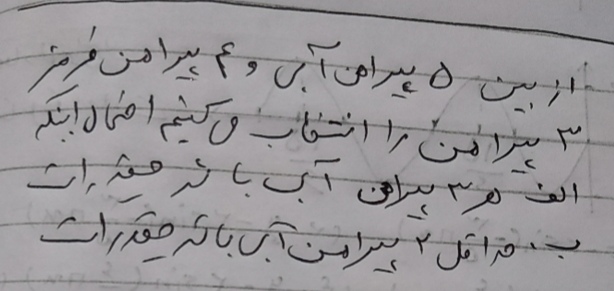 از بین ۵ پیراهن آبی و ۴ پیراهن قرمز
۳ پیراهن را انتخاب می کنیم احتمال اینکه
الف هر ۳ پیراهن آبی باشد چقدر است
ب. حداقل ۲ پیراهن آبی باشد چقدر است